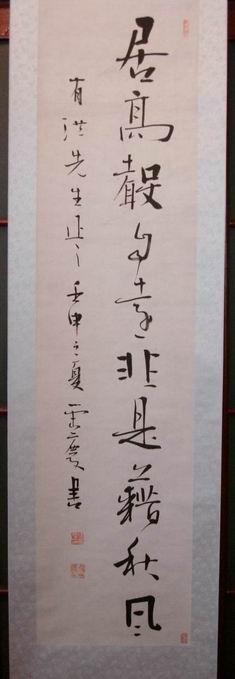 居高聲自遠非是藉秋風
有洪先生正之壬申之夏書